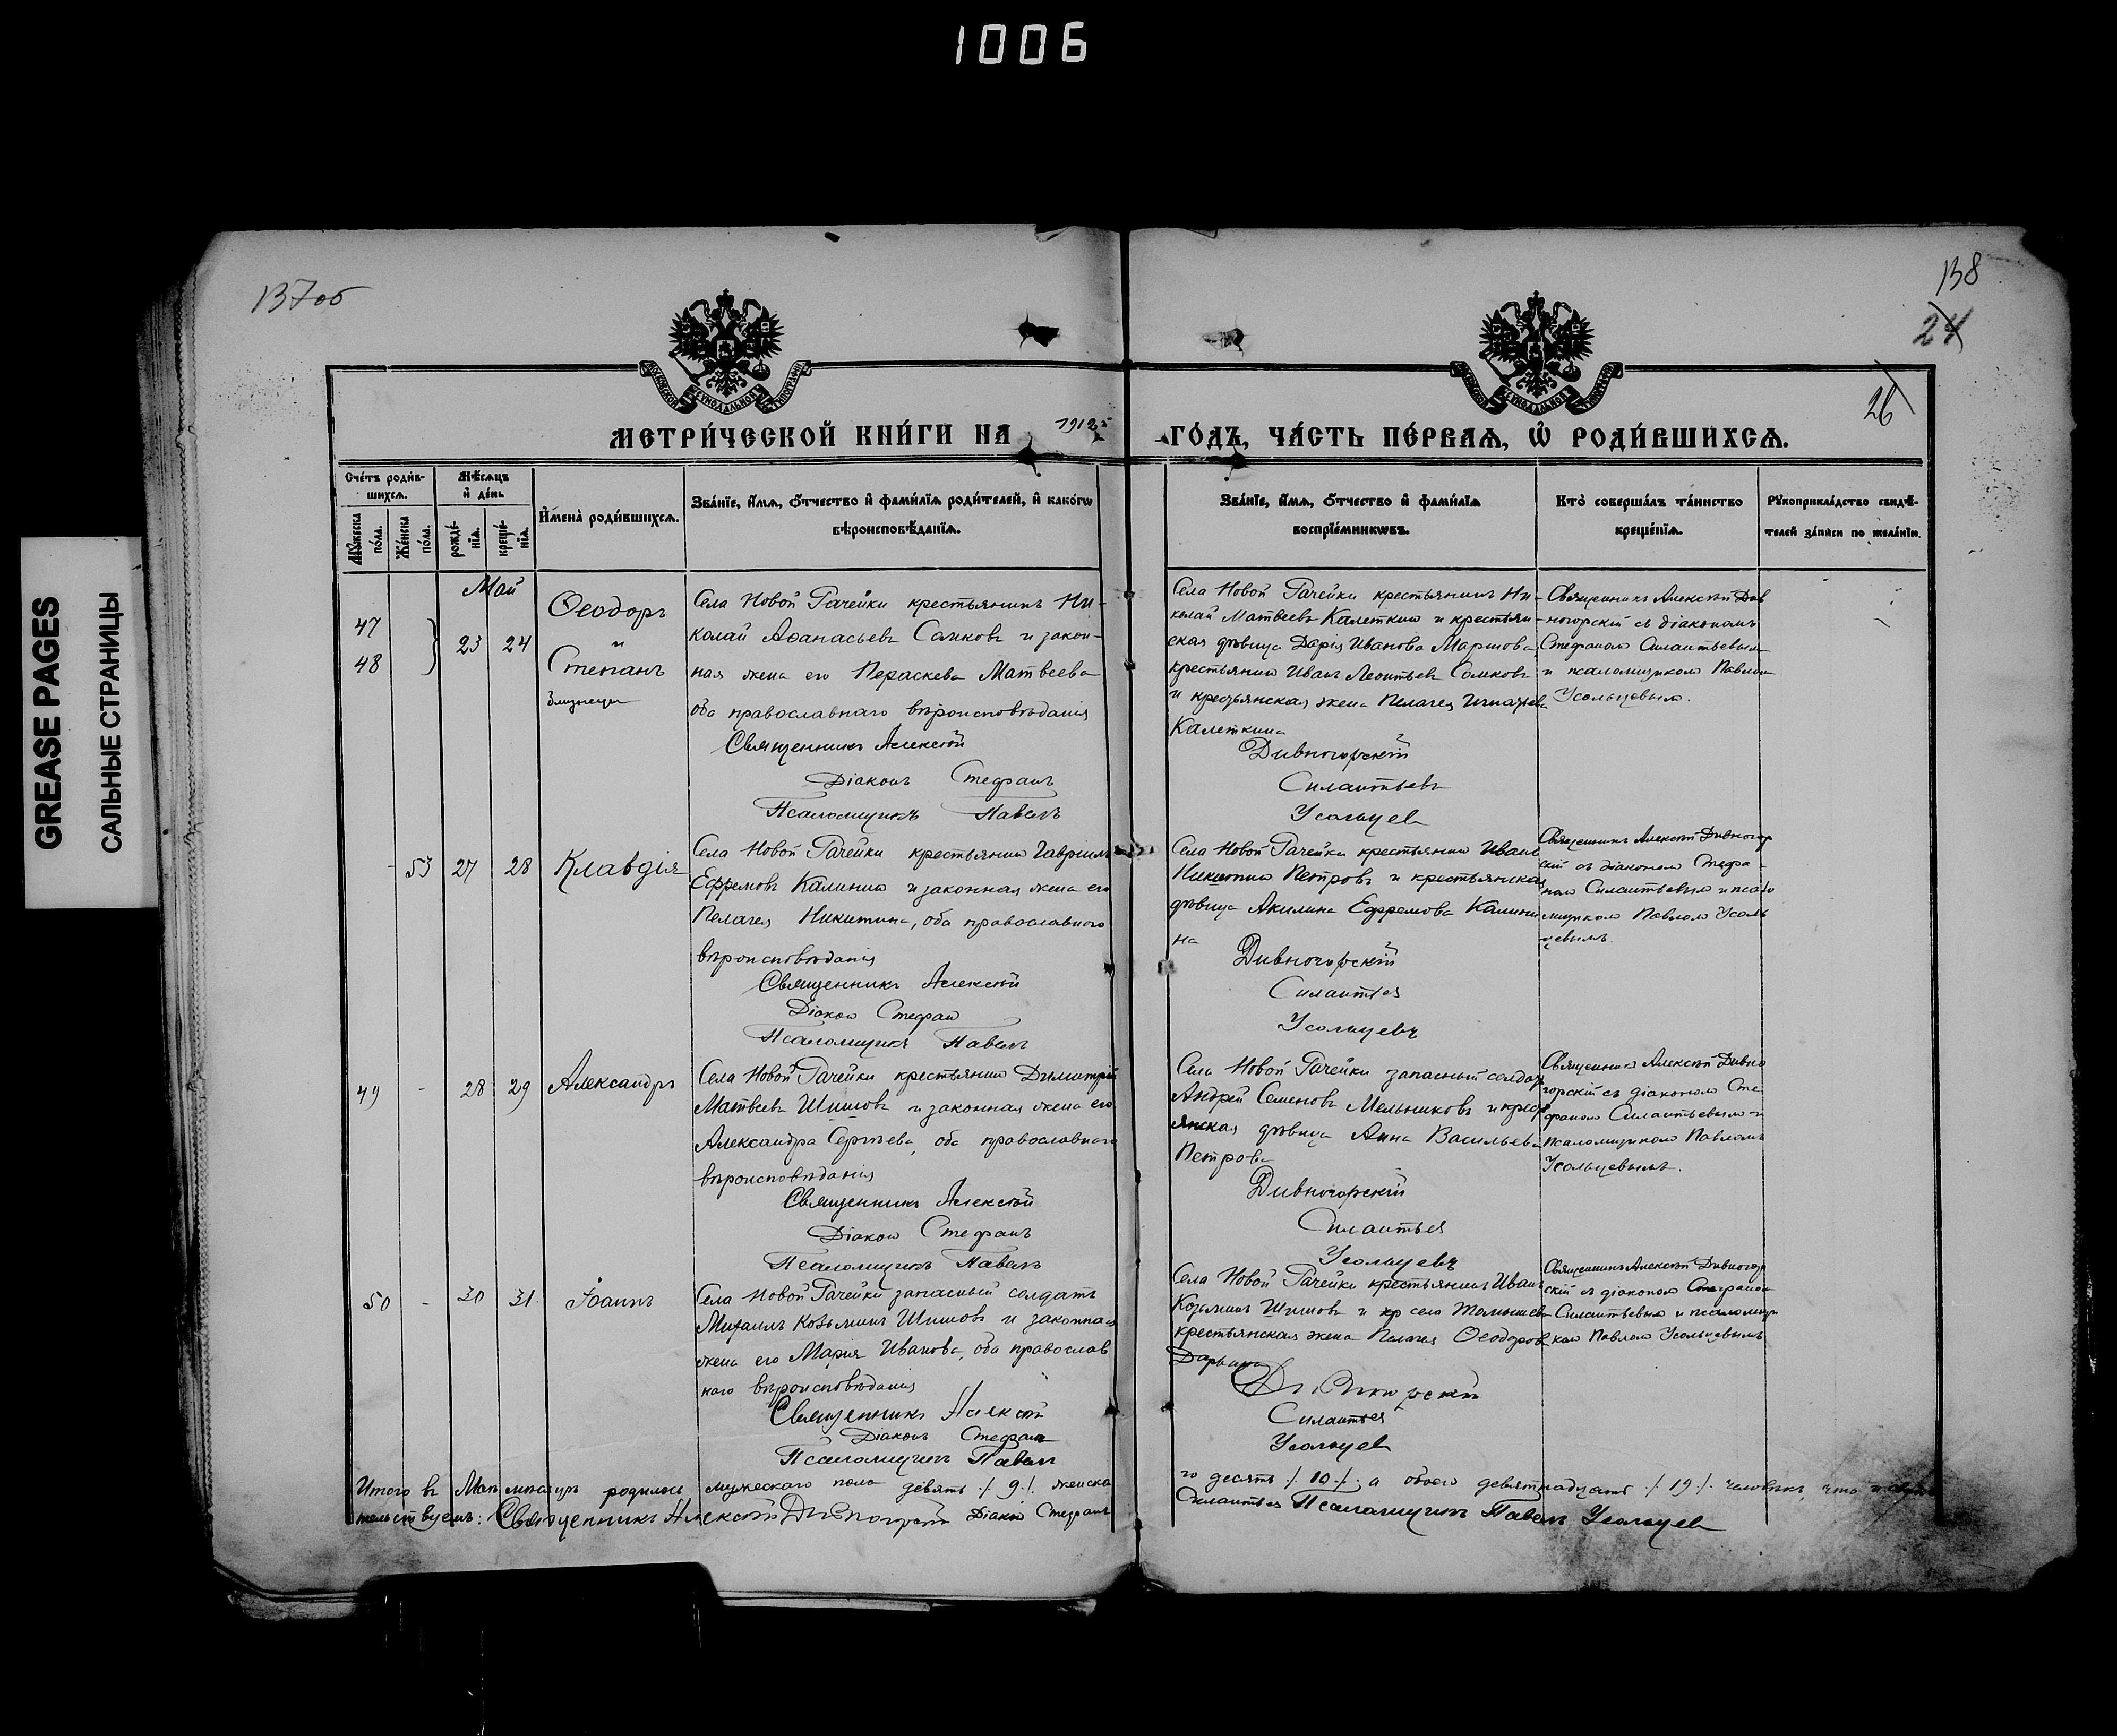 1006
GREASE PAGES
САЛЬНЫЕ СТРАНИЦЫ
137об
138
24
26
МЕТРИ́ЧЕСКОЙ КНИ́ГИ НА 1912 ГО́ДЪ, ЧА́СТЬ ПЕ́РВАѦ, Ѡ҆ РОДИ́ВШИХСѦ.
Сче́тъ роди́в-
шихсѧ.
Мѣ́сѧцъ
и҆ де́нь
Мꙋ́жеска
по́ла.
Же́нска
по́ла.
рожде́-
нїѧ.
креще́-
нїѧ.
И҆мена̀ роди́вшихсѧ.
Зва́нїе, и҆́мѧ, ѻ҆́тчество и҆ фами́лїѧ роди́телей, и҆ како́гѡ
вѣроисповѣ́данїѧ.
Зва́нїе, и҆́мѧ, ѻ҆́тчество и҆ фами́лїѧ
воспрїе́мникѡвъ.
Кто̀ соверша́лъ та́инство
креще́нїѧ.
Рꙋкоприкла́дство свидѣ́-
телей за́писи по жела́нїю.
Май
47
48
23 24
Ѳеодоръ
и
Степанъ
близнецы
Села Новой Рачейки крестьянинъ Ни-
колай Аѳанасьевъ Сомковъ и закон-
ная жена его Параскева Матвеева
оба православнаго вѣроисповѣданія
Священникъ Алексѣй
Діаконъ Стефанъ
Псаломщикъ Павелъ
Села Новой Рачейки крестьянинъ Ни-
колай Матвеевъ Калеткин и крестьян-
ская дѣвица Дарія Иванова Маршова
крестьянин Иванъ Леонтьев Сомковъ
и крестьянская жена Пелагея Игнатьева
Калеткина
Дивногорскій
Силантьевъ
Усольцев
Священникъ Алексѣй Див
ногорскій съ діакономъ
Стефаномъ Силантьевымъ
и псаломщикомъ Павлом
Усольцевымъ.
- 53 27 28 Клавдія
Села Новой Рачейки крестьянин Гавріилъ
Ефремовъ Калинин и законная жена его
Пелагея Никитина, оба православнаго
вѣроисповѣданія
Священникъ Алексѣй
Діакон Стефан
Псаломщикъ Павелъ
Села Новой Рачейки крестьянин Иванъ
Никитин Петровъ и крестьянская
дѣвица Акилина Ефремова Калини
на
Дивногорскій
Силантьев
Усольцевъ
Священникъ Алексѣй Дивногор
скій съ діакономъ Стефа-
номъ Силантьевым и псало
мщикомъ Павлом Усоль
цевымъ.
49 - 28 29 Александръ
Села Новой Рачейки крестьянин Димитрій
Матвеевъ Шишовъ и законная жена его
Александра Сергѣева, оба православнаго
вѣроисповѣданія
Священникъ Алексѣй
Діакон Стефанъ
Псаломщикъ Павелъ
Села Новой Рачейки запасный солдат
Андрей Семеновъ Мельниковъ и кресть
янская дѣвица Анна Васильева
Петрова
Дивногорскій
Силантьев
Усольцевъ
Священникъ Алексѣй Дивно
горскій съ діакономъ Сте
фаномъ Силантьевымъ и
псаломщикомъ Павломъ
Усольцевымъ.
50 - 30 31 Іоаннъ
Села Новой Рачейки запасный солдатъ
Михаилъ Козьминъ Шишовъ и законная
жена его Марія Иванова, оба православ
наго вѣроисповѣданія
Священникъ Алексѣй
Діаконъ Стефанъ
Псаломщикъ Павелъ
Села Новой Рачейки крестьянинъ Иванъ
Козьминъ Шишовъ и кр села
крестьянская жена Пелагея Ѳеодоров
Дивногорскій
Силантьев
Усольцев
Священникъ Алексѣй Дивногор
скій съ діакономъ Стефаном
Силантьевым и псаломщи
ком Павлом Усольцевымъ
Итого въ Маѣ мѣсяцѣ родилось мужескаго пола девять /. 9 /. женска
го десять /. 10 /. а обоего девятнадцать /. 19 /. человѣкъ, что и свидѣ
тельствуемъ: Священникъ Алексѣй Дивногорскій Діакон Стефанъ
Силантьев Псаломщикъ Павелъ Усольцев